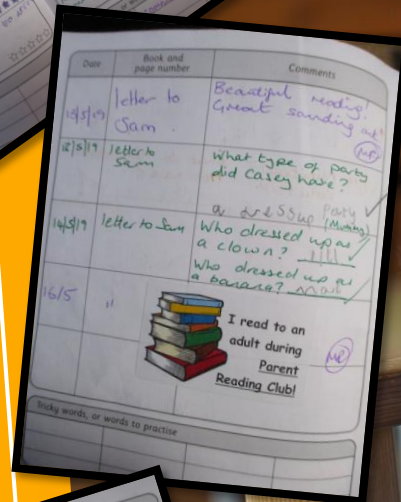 Date
Book and
page number
Comments
13/5/19
letter to
Sam.
Beautiful reading!
Great sounding out
13/5/19
letter to
Sam
What type of party
did Casey have?
a dressup Party
14/5/19
letter to Sam
Who dressed up as
a clown?
Who dressed up as
a banana?
16/5
"
I read to an
adult during
Parent
Reading Club!
Tricky words, or words to practise